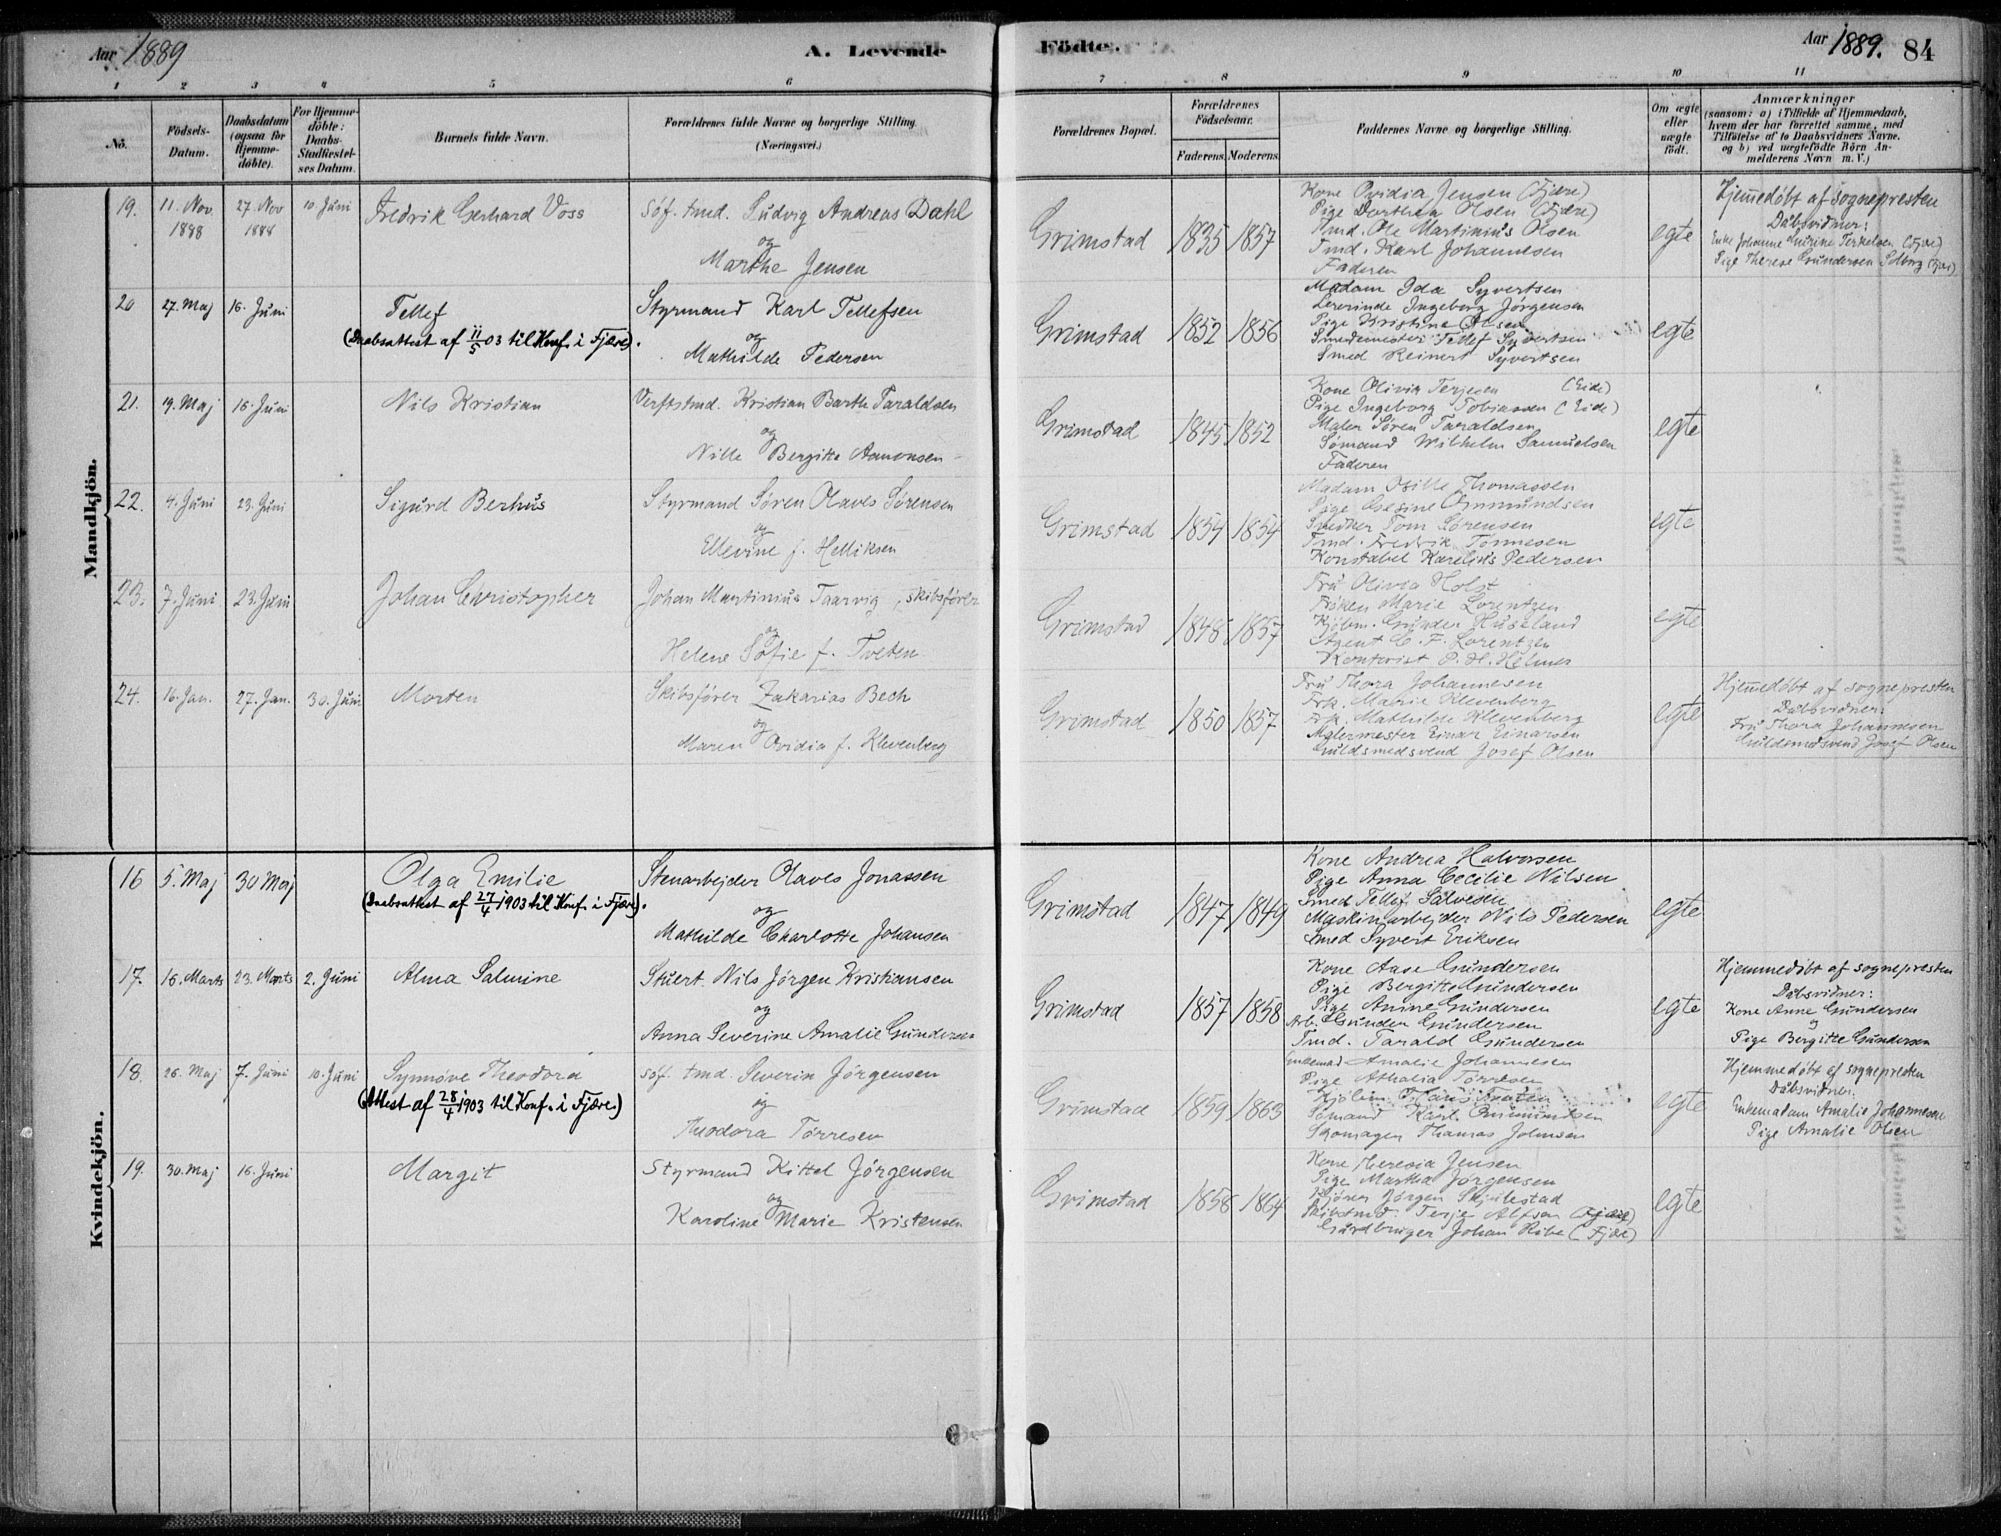 Aar 1889
A. Levende
Födte.
Aar 1889. 84
1 2 3 4 5 6 7 8 9 10 11
No.
Födsels-Datum.
Daabsdatum (ogsaa for Hjemme-döbte).
For Hjemme-döbte: Daabs-Stadfæstel-ses Datum.
Barnets fulde Navn.
Forældrenes fulde Navne og borgerlige Stilling.
(Næringsvei.)
Forældrenes Bopæl.
Forældrenes Födselsaar.
Faderens. Moderens.
Faddernes Navne og borgerlige Stilling.
Om ægte eller uægte födt.
Anmærkninger
(saasom: a) i Tilfælde af Hjemmedaab,
hvem der har forrettet samme, med
Tilföielse af to Daabsvidners Navne.
og b) ved uægtefödte Börn An-
melderens Navn m. V.)
Mandkjön.
19. 11. Nov 1888 27. Nov 1888 10. Juni Fredrik Gerhard Voss
Söf. tmd. Ludvig Andreas Dahl
og
Marthe Jensen
Grimstad 1835 1857
Kone Ovidia Jensen (Fjære)
Pige Dorthea Olsen (Fjære)
Tmd. Ole Martinius Olsen
Tmd. Karl Johannesen
Faderen
egte
Hjemmedøbt af Sognepresten
Dåbsvidner:
Enke Johanne Terkelsen (Fjære)
Pige Therese Gundersen Solborg (Fjære)
20 27. Maj 16. Juni Tellef
(Daabsattest af 11/5 03 til Konf. i Fjære).
Styrmand Karl Tellefsen
og
Mathilde Pedersen
Grimstad 1852 1856
Madam Ida Syvertsen
Lererinde Ingeborg Jørgensen
Pige Kristine Olsen
Smedemester Tellef Syvertsen
Smed Reinert Syvertsen
egte
21. 19. Maj 16. Juni Nils Kristian
Verftstmd. Kristian Barth Taraldsen
og
Nille Bergitte Aanonsen
Grimstad 1845 1852
Kone Olivia Terjesen (Eide)
Pige Ingeborg Tobiassen (Eide)
Maler Søren Taraldsen
Sømand Wilhelm Samuelsen
Faderen
egte
22. 4. Juni 23. Juni Sigurd Berhus
Styrmand Søren Olaves Sørensen
og
Ellevine f. Helliksen
Grimstad 1854 1854
Madam Thomassen
Pige Gesine Ommundsen
Snedker Tom Sørensen
Tmd. Fredrik Tønnesen
Konstabel Karelius Pedersen
egte
23. 7. Juni 23. Juni Johan Christopher
Johan Martinius Taarvig, skibsfører
og
Helene Sofie f. Tveten
Grimstad 1848 1857
Fru Olivia Holst
Frøken Marie Lorentzen
Kjøbm. Gunder Huseland
Agent C. F. Lorentzen
Kontorist P. H. Helmer
egte
24. 16. Jan. 27. Jan. 30. Juni Morten
Skibsfører Zakarias Bech
og
Maren Ovidia f. Klevenberg
Grimstad 1850 1857
Fru Thora Johannesen
Frk. Marie Klevenberg
Frk. Mathilde Klevenberg
Malermester Einar Einarsen
Guldsmedsvend Josef Olsen
egte
Hjemmedøbt af sognepresten
Dåbsvidner:
Fru Thora Johannesen
Guldsmedsvend Josef Olsen
Kvindekjön.
16 5. Maj 30 Maj Olga Emilie
(Daabsattest af 27/4 1903 til Konf. i Fjære).
Stenarbejder Olaves Jonassen
og
Mathilde Charlotte Johansen
Grimstad 1847 1849
Kone Andrea Halvorsen
Pige Anna Cecilie Nilsen
Smed Tellef Salvesen
Maskinarbejder Nils Pedersen
Smed Syvert Eriksen
egte
17. 16. Marts 23. Marts 2. Juni Alma Salmine
Stuert Nils Jørgen Kristiansen
og
Anna Severine Amalie Gundersen
Grimstad 1857 1858
Kone Aase Gundersen
Pige Bergitte Gundersen
Pige Anine Gundersen
Arb. Gunder Gundersen
Tmd. Tarald Gundersen
egte
Hjemmedøbt af sognepresten
Dåbsvidner:
Kone Anne Gundersen
og
Pige Bergitte Gundersen
18. 26. Maj 7. Juni 10. Juni Synnøve Theodora
(Attest af 28/4 1903 til Konf. i Fjære.)
Söf. tmd. Severin Jørgensen
og
Theodora Tørresen
Grimstad 1859 1863
Enkemad. Amalie Johannesen
Pige Athalia Tørresen
Kjøbm. Hans
Sømand Karl Omundsen
Skomager Thomas Johnsen
egte
Hjemmedøbt af sognepresten
Dåbsvidner:
Enkemadam Amalie Johannesen
Pige Amalie Olsen
19. 30. Maj 16. Juni Margit
Styrmand Kittel Jørgensen
og
Karoline Marie Kristensen
Grimstad 1858 1864
Kone Theresia Jensen
Pige Martha Jørgensen
Kjører Jørgen Skjulestad
Skibstmd. Terje Alfsen (Fjære)
Gårdbruger Johan Ribe (Fjære)
egte